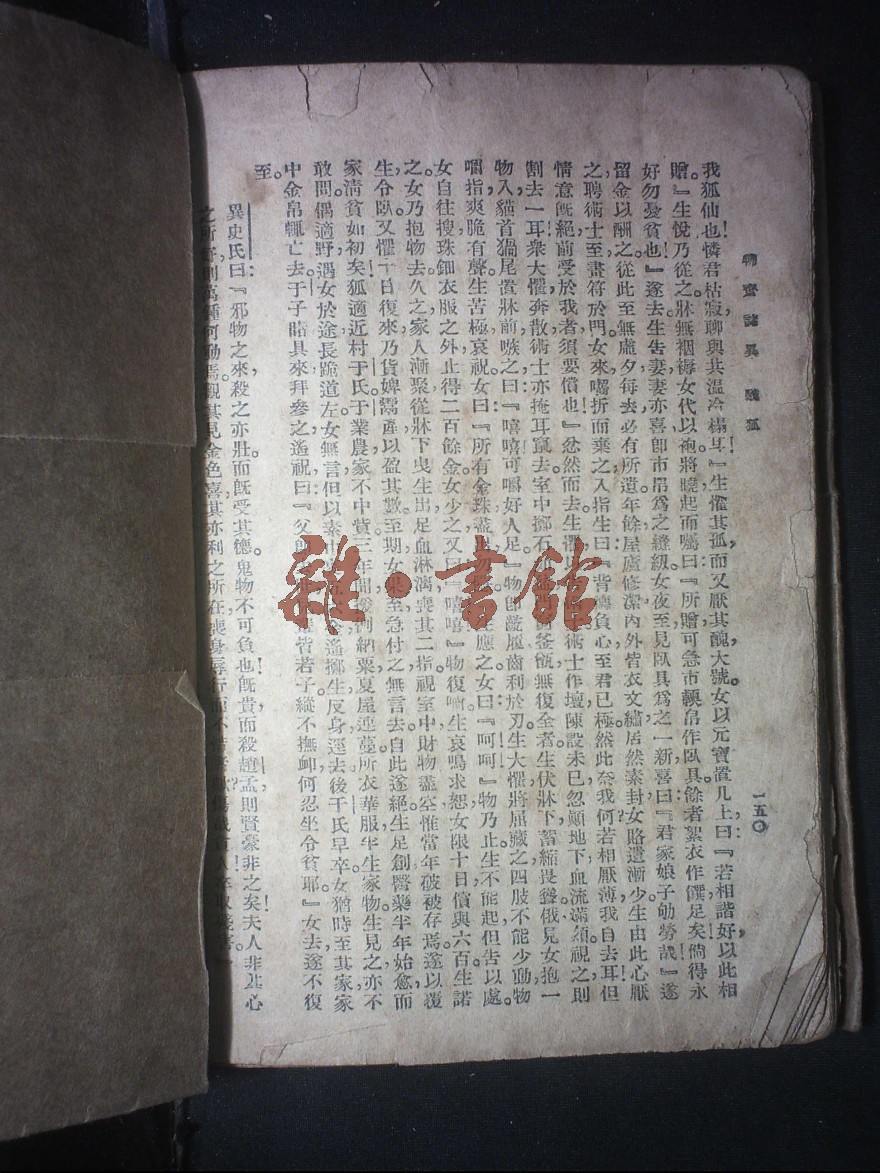 聊齋誌異 醜狐
一五〇
我狐仙也憐君枯寂聊與共溫冷榻耳』生懼其狐而又厭其醜大號女以元寶置几上曰『若相諧好以此相
贈』生悅乃從之牀無裀褥女代以袍將曉起而囑曰『所贈可急市輭帛作臥具餘者絮衣作饌足矣倘得永
好勿憂貧也』遂去生告妻妻亦喜卽市帛爲之縫紉女夜至見臥具爲之一新喜曰『君家娘子劬勞哉』遂
留金以酬之從此至無虛夕每去必有所遺年餘屋廬修潔內外皆衣文繡居然素封女賂遺漸少生由此心厭
之聘術士至畫符於門女來囓折而棄之入指生曰『背德負心至君已極然此奈我何若相厭薄我自去耳但
情意旣絕前受於我者須要償也』忿然而去生懼 術士作壇陳設未已忽顚地下血流滿頰視之則
割去一耳衆大懼奔散術士亦掩耳竄去室中擲石 釜甑無復全者生伏牀下蓄縮畏聳俄見女抱一
物入貓首猧尾置牀前嗾之曰『嘻嘻可嚼奸人足』物卽齕履齒利於刃生大懼將屈藏之四肢不能少動物
嚼指爽脆有聲生苦極哀祝女曰『所有金珠盡 應之女曰『呵呵』物乃止生不能起但告以處
女自往搜珠鈿衣服之外止得二百餘金女少之又曰『嘻嘻』物復嚼生哀鳴求恕女限十日償與六百生諾
之女乃抱物去久之家人漸聚從牀下曳生出足血淋漓喪其二指視室中財物盡空惟當年破被存焉遂以覆
生令臥又懼十日復來乃貨婢鬻產以盈其數至期女果至急付之無言去自此遂絕生足創醫藥半年始愈而
家淸貧如初矣狐適近村于氏于業農家不中貲三年間援例納粟夏屋連蔓所衣華服半生家物生見之亦不
敢問偶適野遇女於途長跪道左女無言但以素巾 遙擲生反身逕去後于氏早卒女猶時至其家家
中金帛輒亡去于子睹其來拜參之遙祝曰『父卽 皆若子縱不撫卹何忍坐令貧耶』女去遂不復
至
異史氏曰『邪物之來殺之亦壯而旣受其德鬼物不可負也旣貴而殺趙孟則賢豪非之矣夫人非其心
之所 則萬鍾何動焉觀其見金色喜其亦利之所在喪身辱行而不
雜·書館